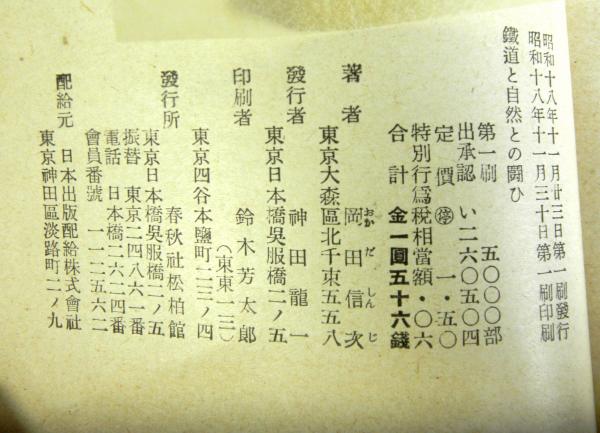 昭和十八年十一月三十日第一刷印刷
昭和十八年十一月廿三日第一刷發行
鐵道と自然との鬪ひ
第一刷 五〇〇〇部
出承認 い二六〇五〇四
定價 停 一・五〇
特別行爲稅相當額・〇六
合計 金一圓五十六錢
著者 岡田信次
おかだしんじ
東京大森區北千束五五八
發行者 神田龍一
東京日本橋吳服橋二ノ五
印刷者 鈴木芳太郎
(東東一三)
東京四谷本鹽町二三ノ四
發行所 春秋社松柏館
東京日本橋吳服橋二ノ五
振替 東京二四八六一番
電話 日本橋二六二四番
會員番號 一一二五六二
配給元 日本出版配給株式會社
東京神田區淡路町二ノ九